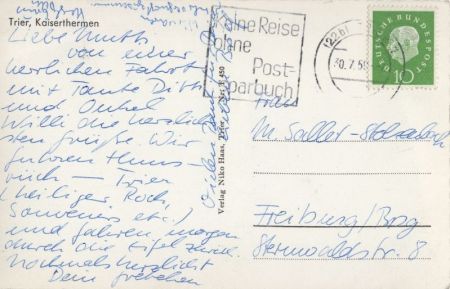 Trier, Kaiserthermen
Liebe Mutti,
von einer
herrlichen Fahrt
mit Tante Ditti
und Onkel
Willi die herzlich-
sten Grüße. Wir
fuhren Huns-
rück - Trier
(heiliger Rock,
Souvenirs etc.)
und fahren morgen
durch die Eifel zurück.
Nochmals herzlichst
Dein
Vielen Dank
Verlag Niko Haas, Trier Nr. B 450
Keine Reise
ohne
Post-
sparbuch
(22b)
30.7.59
DEUTSCHE BUNDESPOST
10
Frau
M. Saller-
Freiburg/Brsg
Sternwaldstr. 8